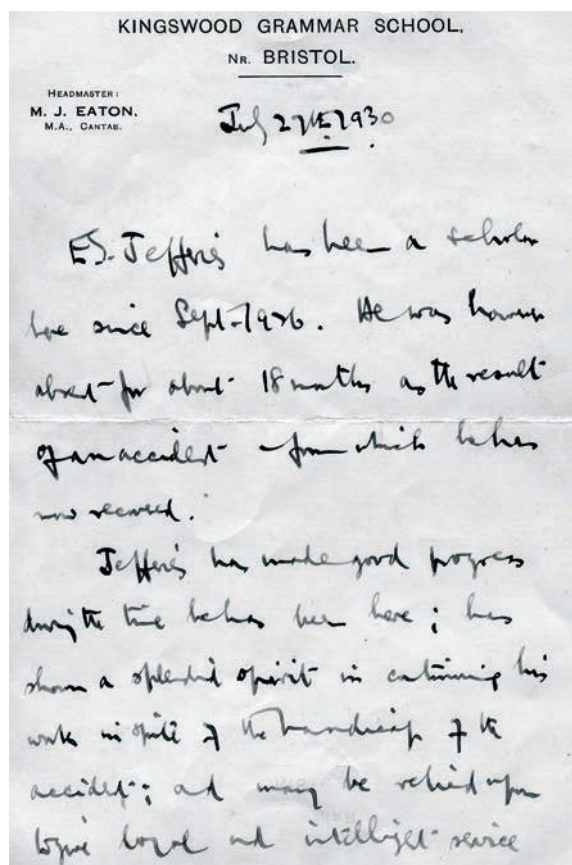 KINGSWOOD GRAMMAR SCHOOL,
NR. BRISTOL.
HEADMASTER:
M. J. EATON.
M.A., CANTAB.
July 1930
E.S. Jefferis has been a scholar
here since Sept. 1926. He was however
absent for about 18 months as the result
of an accident from which he has
now recovered.
Jefferis has made good progress
during the time he has been here; has
shown a splendid spirit in continuing his
work in spite of the handicap of the
accident; and may be relied upon
to give loyal and intelligent service